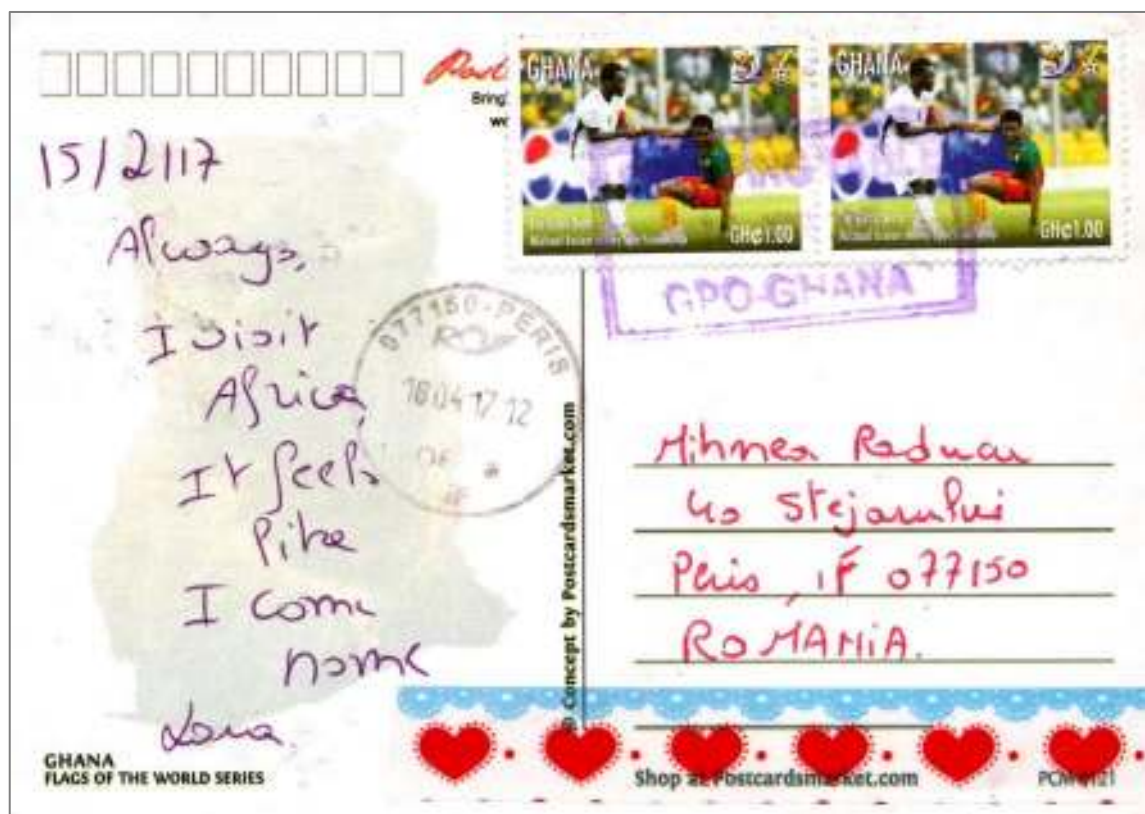 Post
Bring
we
GHANA
GH₵1.00
GHANA
GH₵1.00
GPO-GHANA
15/2/17
Always,
I visit
Africa,
It feels
like
I come
home
077150-PERIS
18 04 17 12
IF
© Concept by Postcardsmarket.com
Mihnea Raducu
40 Stejarului
Peris, IF 077150
ROMANIA.
GHANA
FLAGS OF THE WORLD SERIES
Shop at Postcardsmarket.com